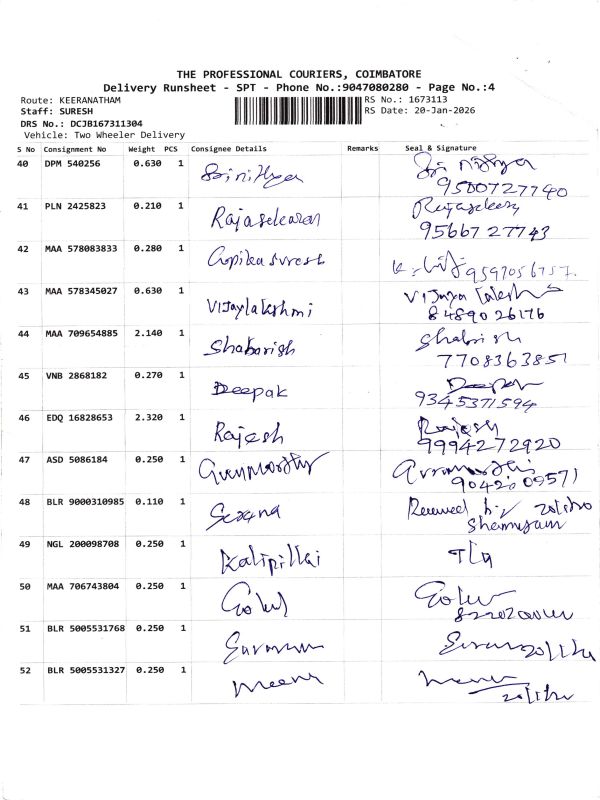 THE PROFESSIONAL COURIERS, COIMBATORE
Delivery Runsheet - SPT - Phone No.:9047080280 - Page No.:4
Route: KEERANATHAM RS No.: 1673113
Staff: SURESH RS Date: 20-Jan-2026
DRS No.: DCJB167311304
Vehicle: Two Wheeler Delivery
S No Consignment No Weight PCS Consignee Details Remarks Seal & Signature
40 DPM 540256 0.630 1 Srinithya Sri Nithya
9500727740
41 PLN 2425823 0.210 1 Rajasekaran Rajasekar
9566727743
42 MAA 578083833 0.280 1 Gopika suresh
43 MAA 578345027 0.630 1 Vijaylakshmi Vijaya laksh
8489026176
44 MAA 709654885 2.140 1 Shabarish Shabrish
7708363851
45 VNB 2868182 0.270 1 Deepak Deepak
9345371594
46 EDQ 16828653 2.320 1 Rajesh Rajesh
9994272920
47 ASD 5086184 0.250 1
9042009571
48 BLR 9000310985 0.110 1 Received by
49 NGL 200098708 0.250 1 Kalipillai
50 MAA 706743804 0.250 1 Gokul
51 BLR 5005531768 0.250 1
52 BLR 5005531327 0.250 1 Meena